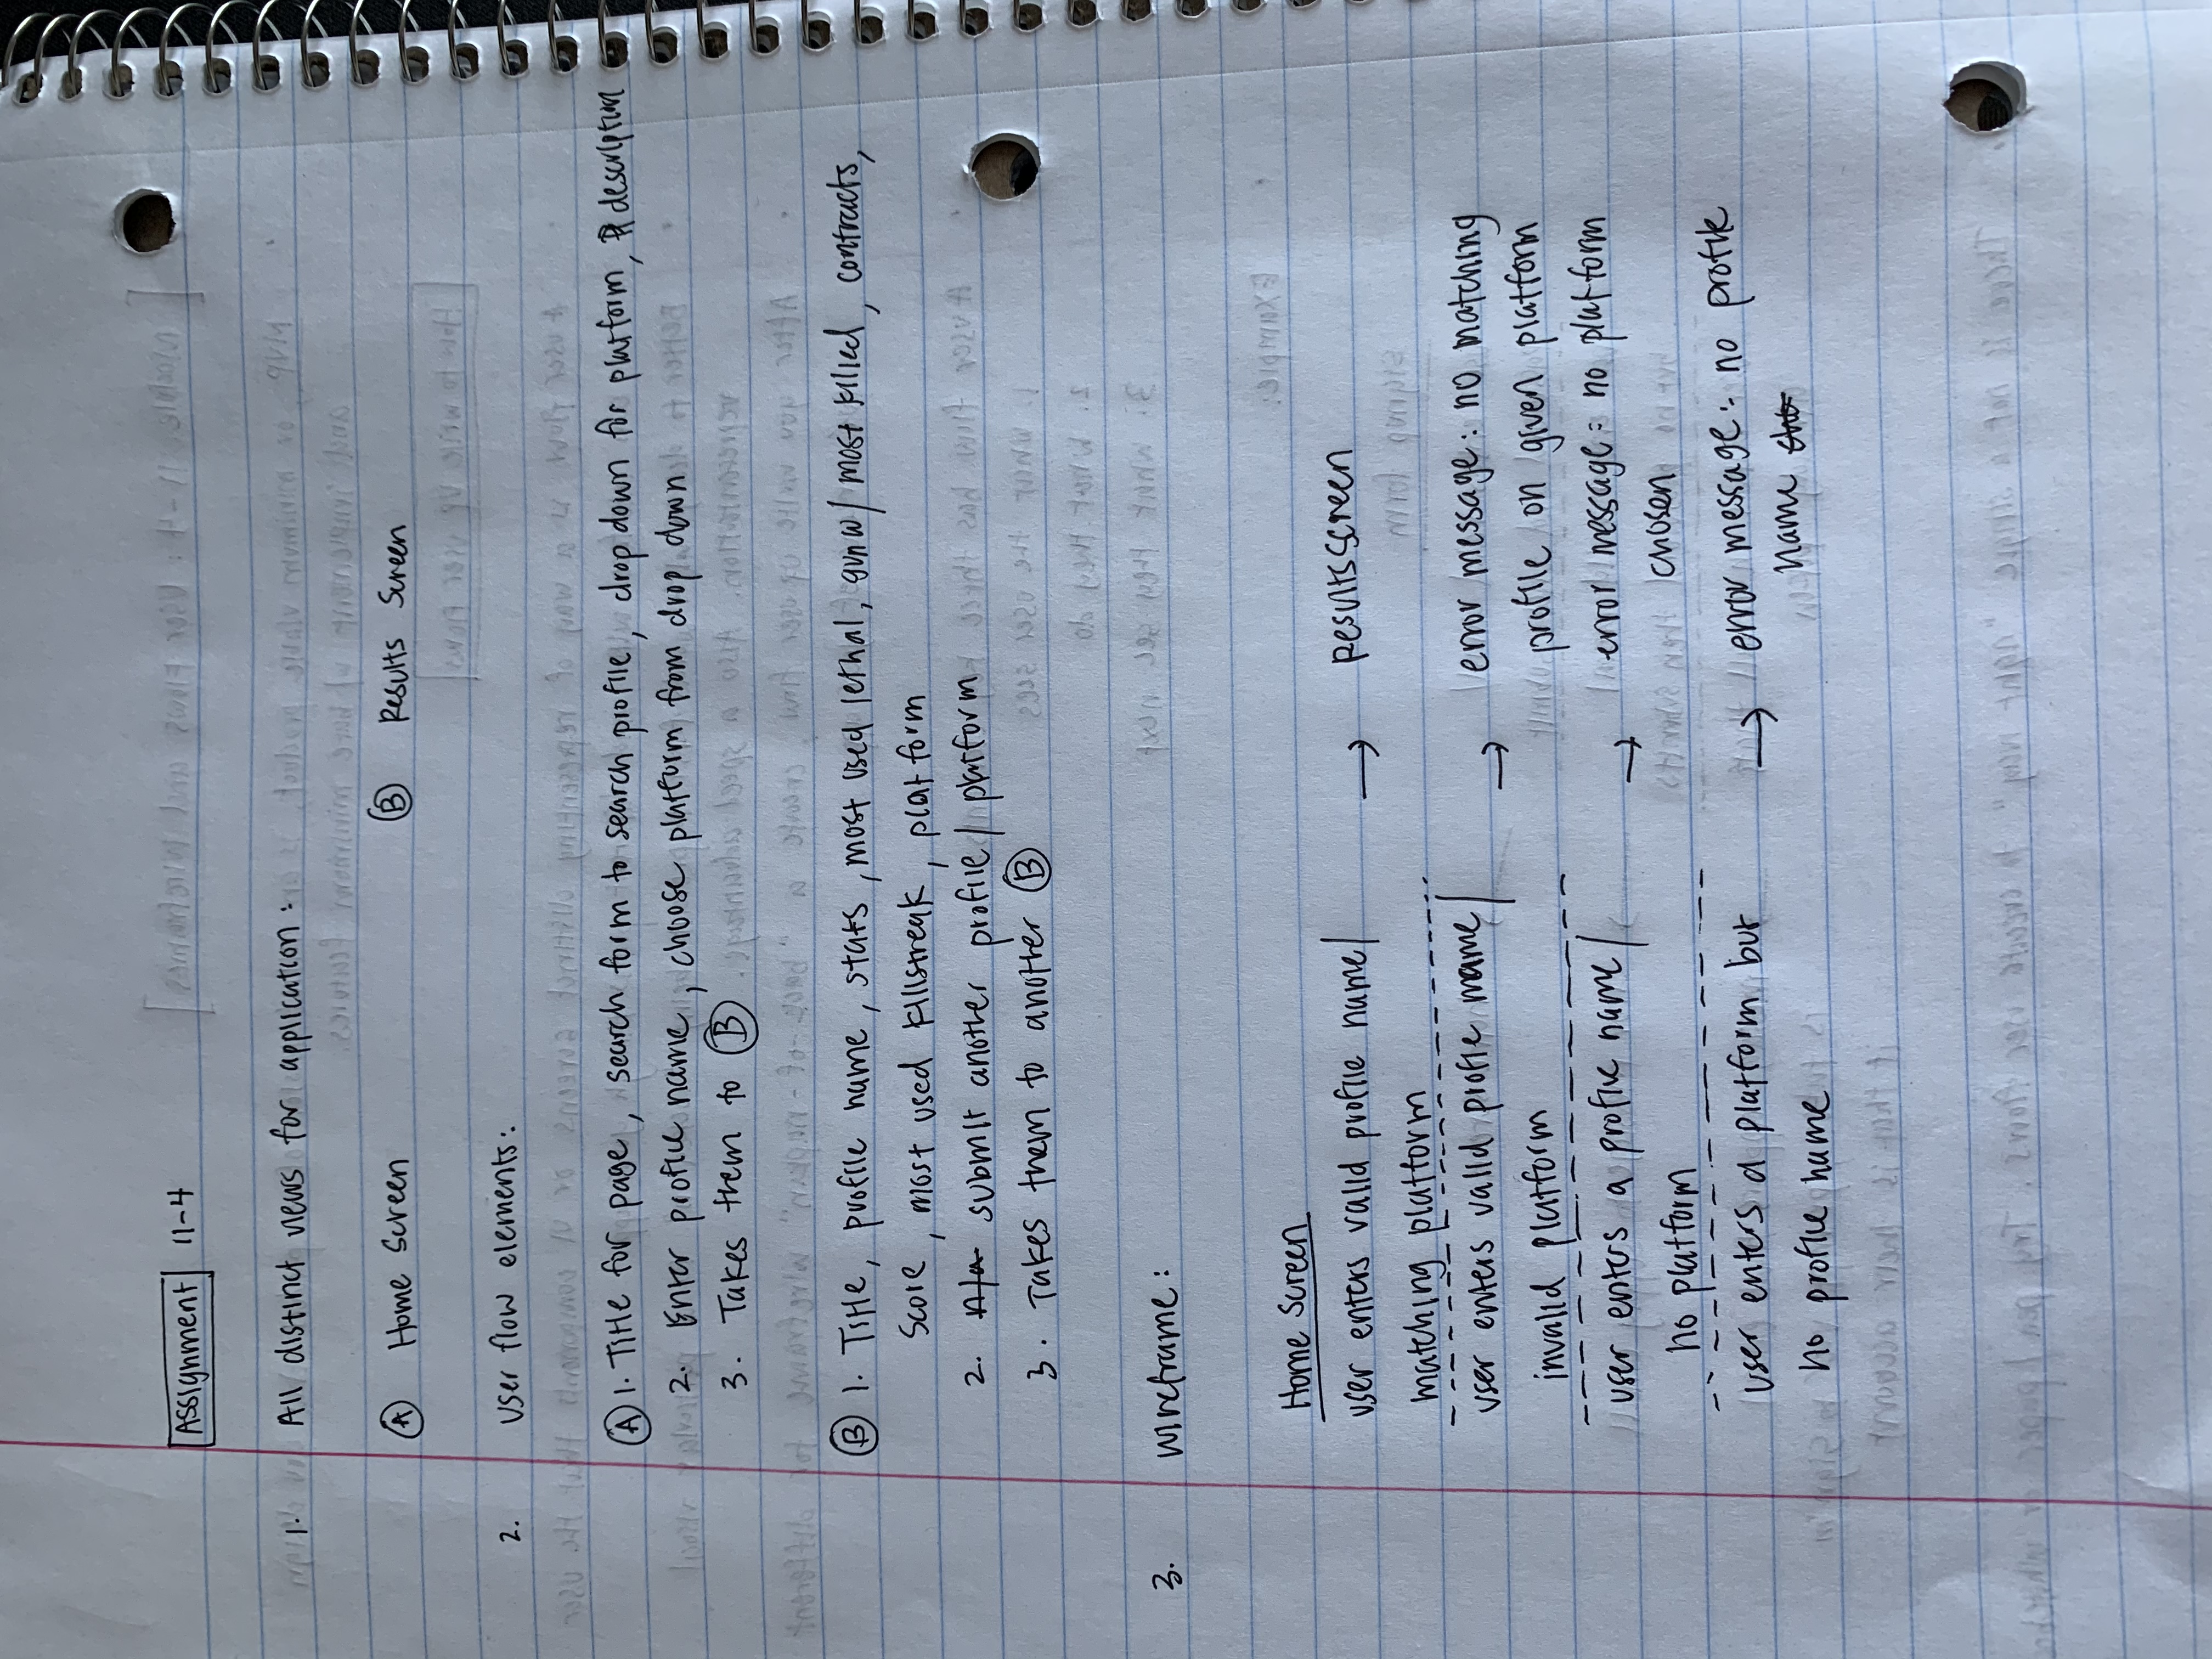 Assignment 11-4
1. All distinct views for application:
Ⓐ Home Screen Ⓑ Results Screen
2. User flow elements:
Ⓐ 1. Title for page, search form to search profile, drop down for platform, description
2. Enter profile name, choose platform from drop down
3. Takes them to Ⓑ
Ⓑ 1. Title, profile name, stats, most used lethal, gun w/ most killed, contracts,
score, most used killstreak, platform
2. n/a submit another profile/platform
3. Takes them to another Ⓑ
3. wireframe:
Home Screen
user enters valid profile name/ → Results screen
matching platform
user enters valid profile name/ → error message: no matching
invalid platform profile on given platform
user enters a profile name/ → error message: no platform
no platform chosen
user enters a platform but → error message: no profile
no profile name name